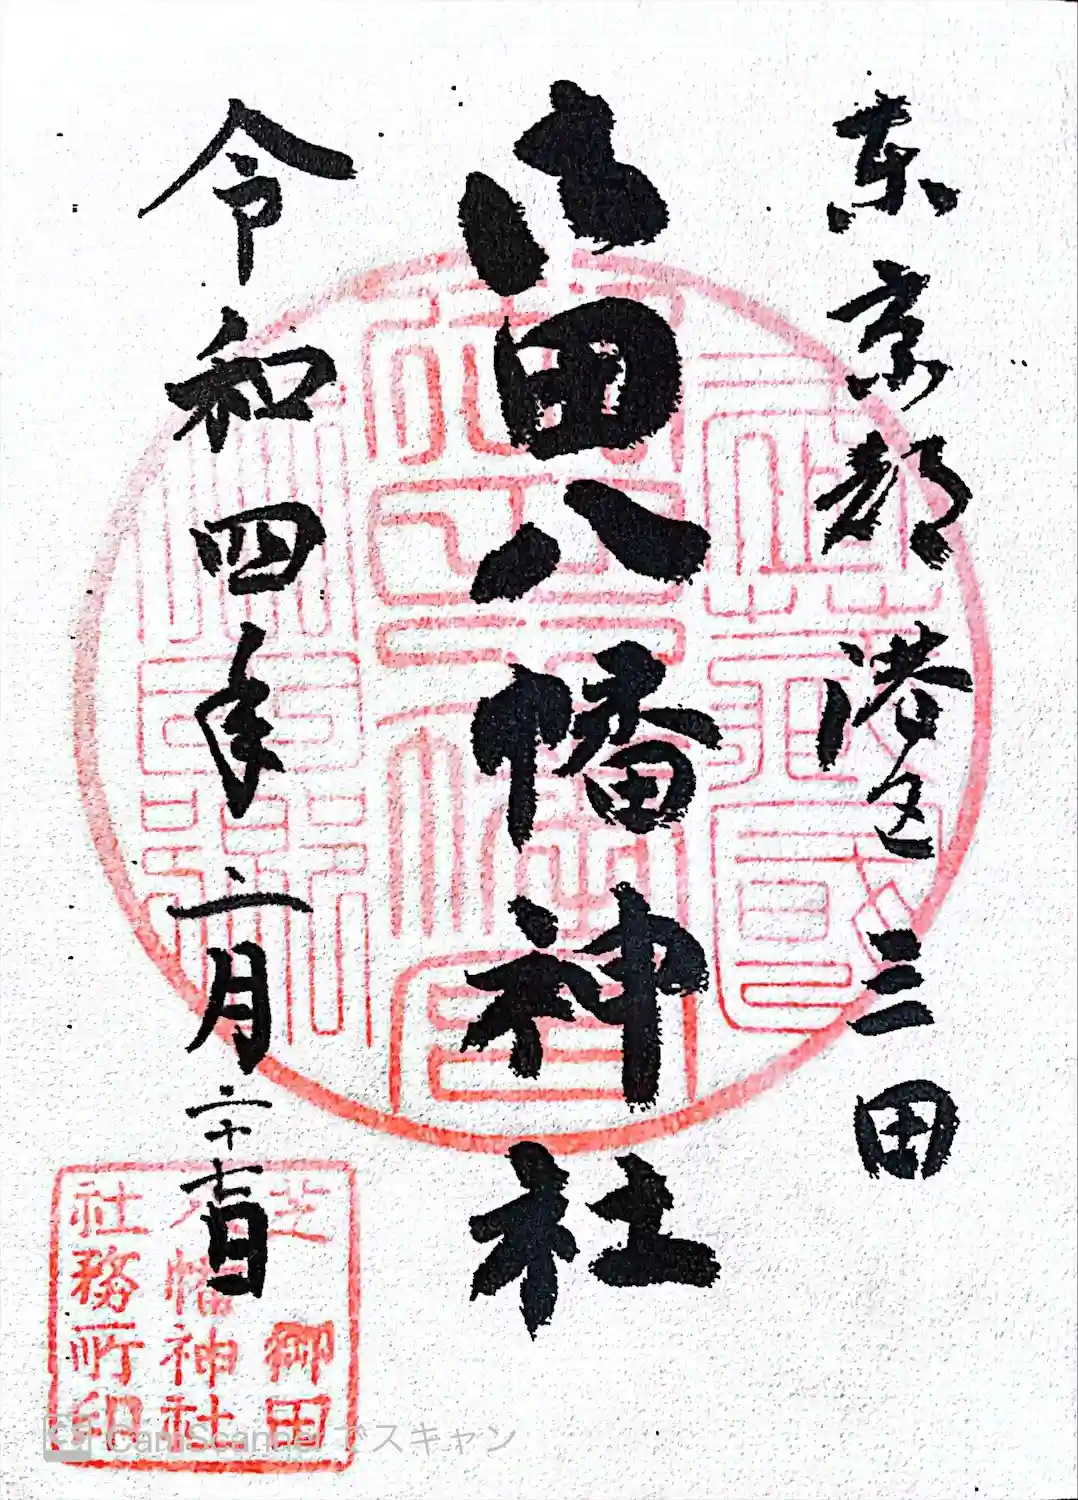 東京都港区三田
御田八幡神社
令和四年二月二十七日
芝 御田
八幡神社
社務所印
CamScannerでスキャン